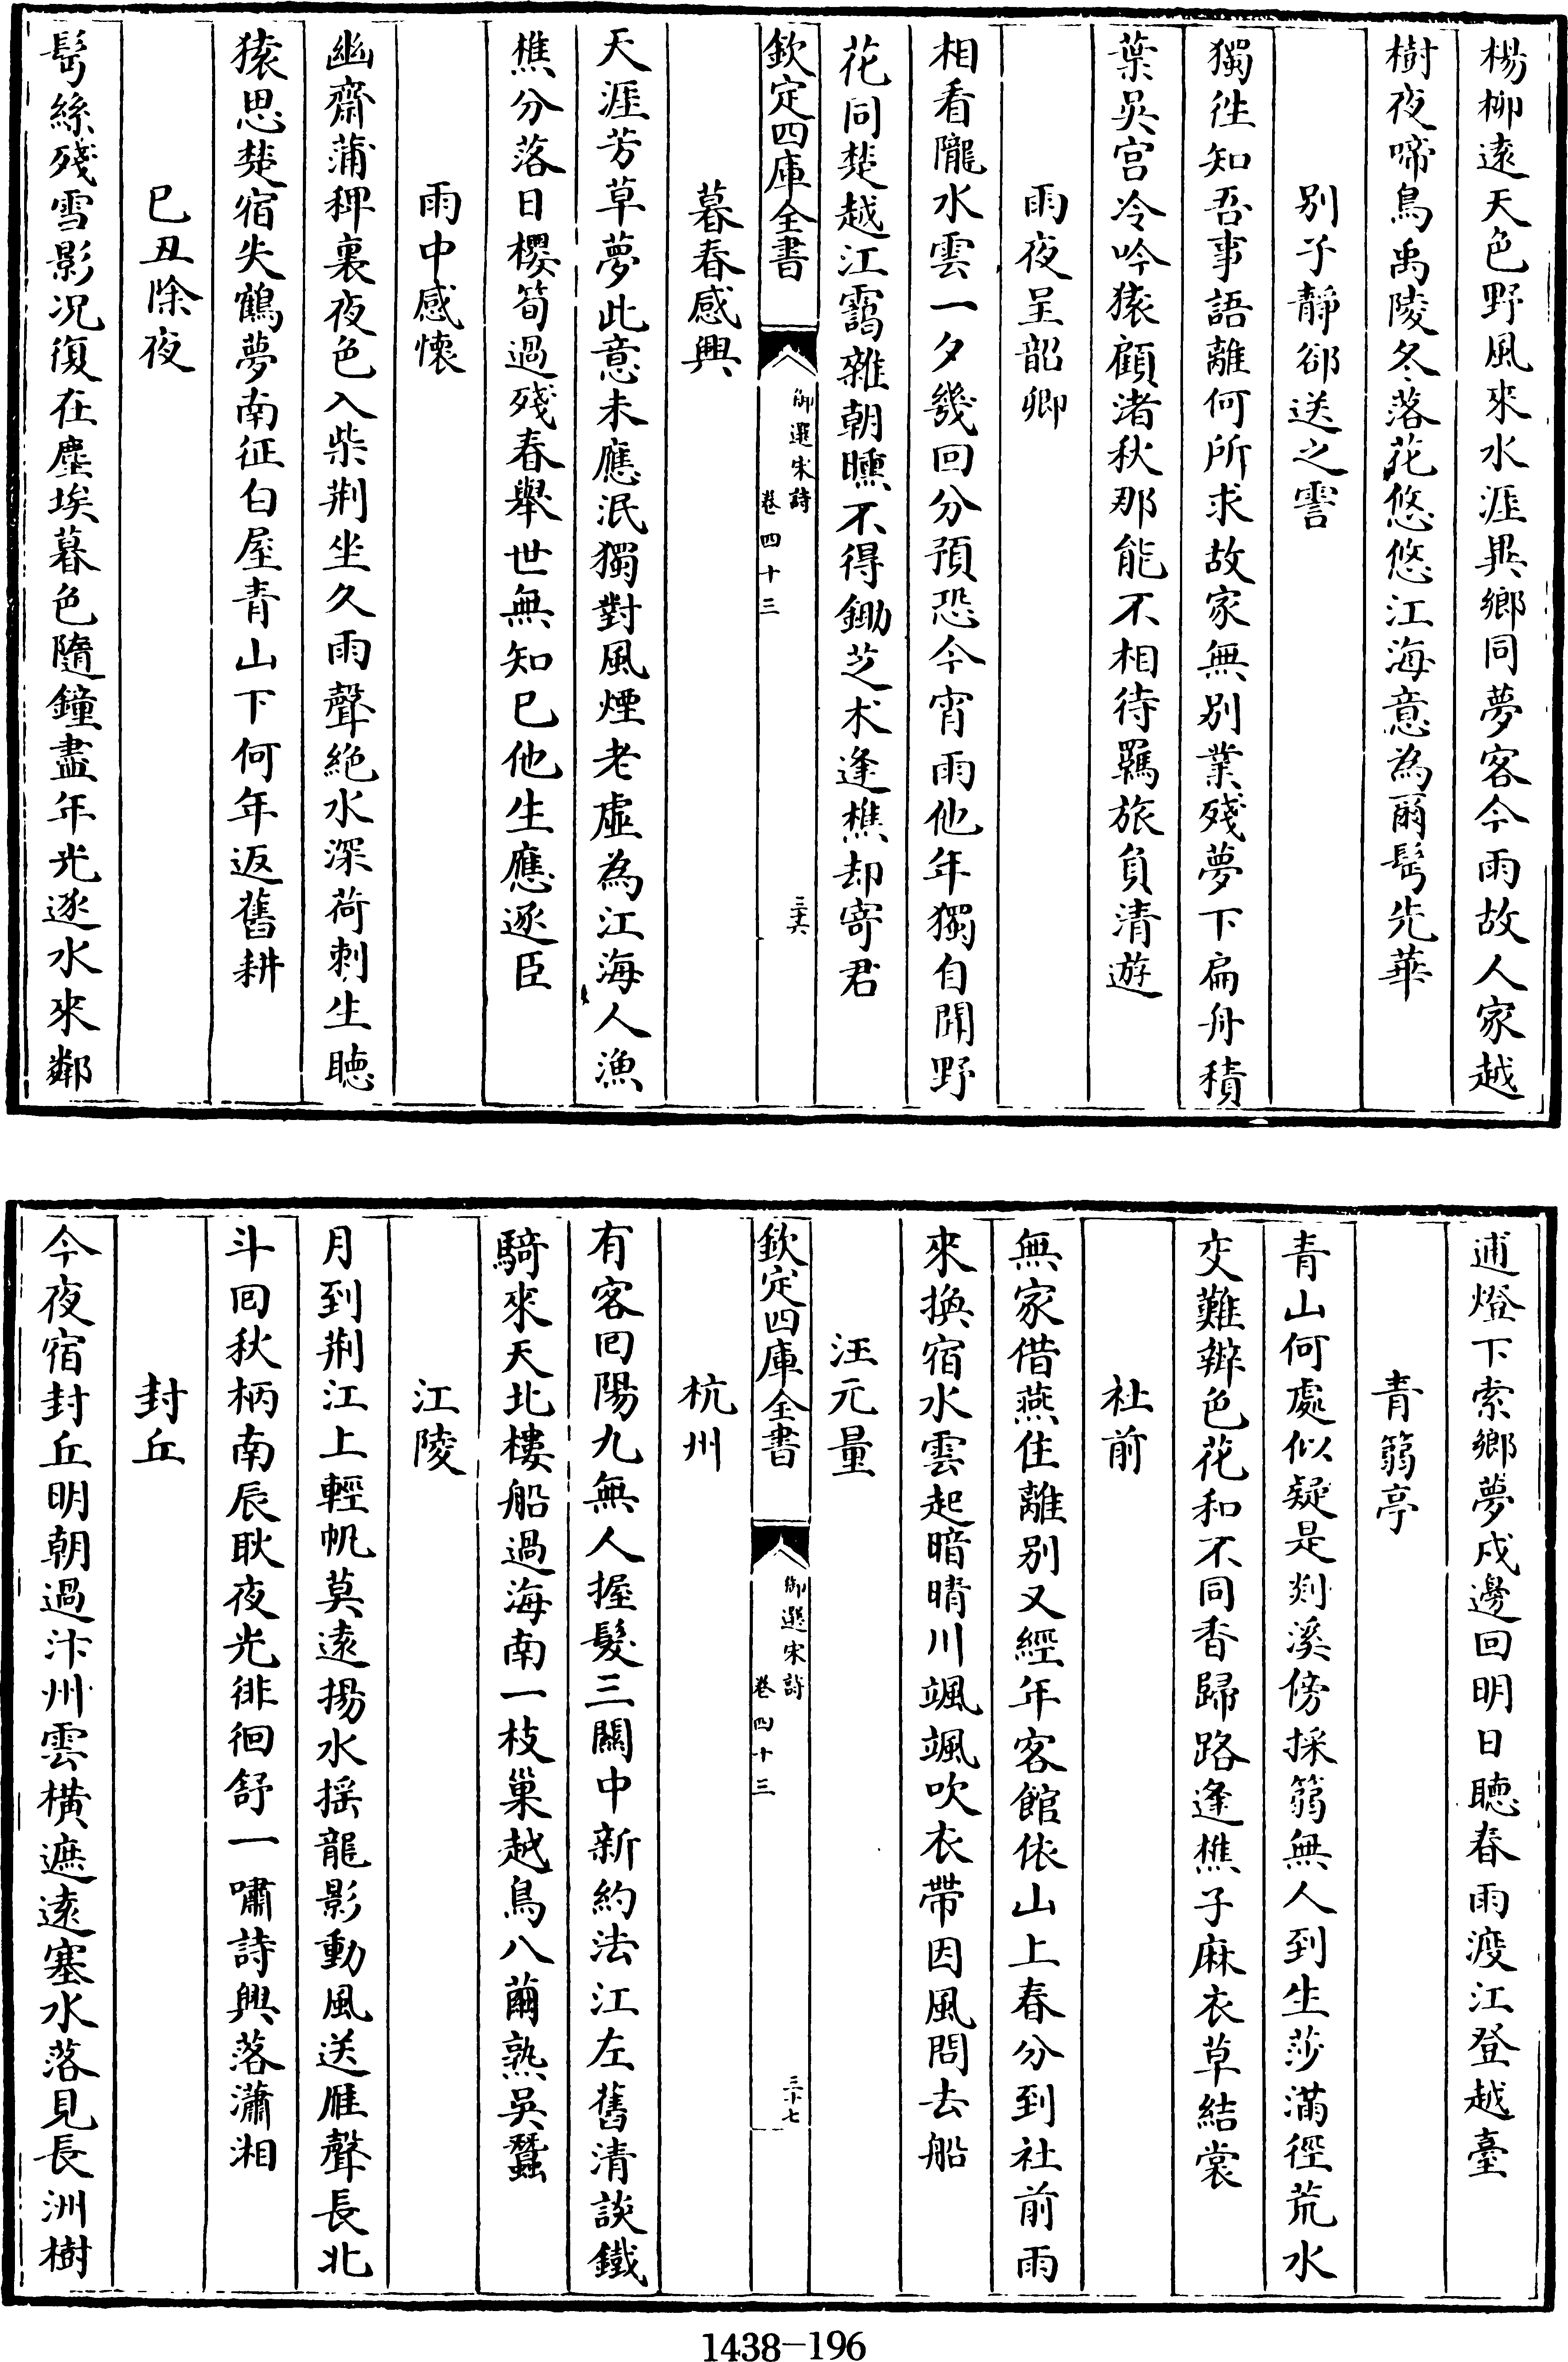 楊柳遠天色野風來水涯異鄉同夢客今雨故人家越
樹夜啼鳥禹陵冬落花悠悠江海意為爾髩先華
別子靜邵送之霅
獨徃知吾事語離何所求故家無別業殘夢下扁舟積
葉吳宫冷吟猿顧渚秋那能不相待羈旅負清遊
雨夜呈韶卿
相看隴水雲一夕幾回分預恐今宵雨他年獨自聞野
花同楚越江靄雜朝曛不得鋤芝术逢樵却寄君
欽定四庫全書
御選宋詩
卷四十三
三十六
暮春感興
天涯芳草夢此意未應泯獨對風煙老虛為江海人漁
樵分落日櫻筍過殘春舉世無知已他生應逐臣
雨中感懷
幽齋蒲稗裏夜色入柴荆坐久雨聲絶水深荷刺生聴
猿思楚宿失鶴夢南征白屋青山下何年返舊耕
已丑除夜
髩絲殘雪影况復在塵埃暮色隨鐘盡年光逐水來鄰
逋燈下索鄉夢戍邊回明日聴春雨渡江登越臺
青篛亭
青山何處似疑是剡溪傍採篛無人到生莎滿徑荒水
交難辨色花和不同香歸路逢樵子麻衣草結裳
社前
無家借燕住離別又經年客館依山上春分到社前雨
來換宿水雲起暗晴川颯颯吹衣帶因風問去船
汪元量
欽定四庫全書
御選宋詩
卷四十三
三十七
杭州
有客囘陽九無人握髮三關中新約法江左舊清談鐵
騎來天北樓船過海南一枝巢越鳥八繭熟吳蠶
江陵
月到荆江上輕帆莫遠揚水摇龍影動風送雁聲長北
斗囘秋柄南辰耿夜光徘徊舒一嘯詩興落瀟湘
封丘
今夜宿封丘明朝過汴州雲橫遮遠塞水落見長洲樹
1438-196